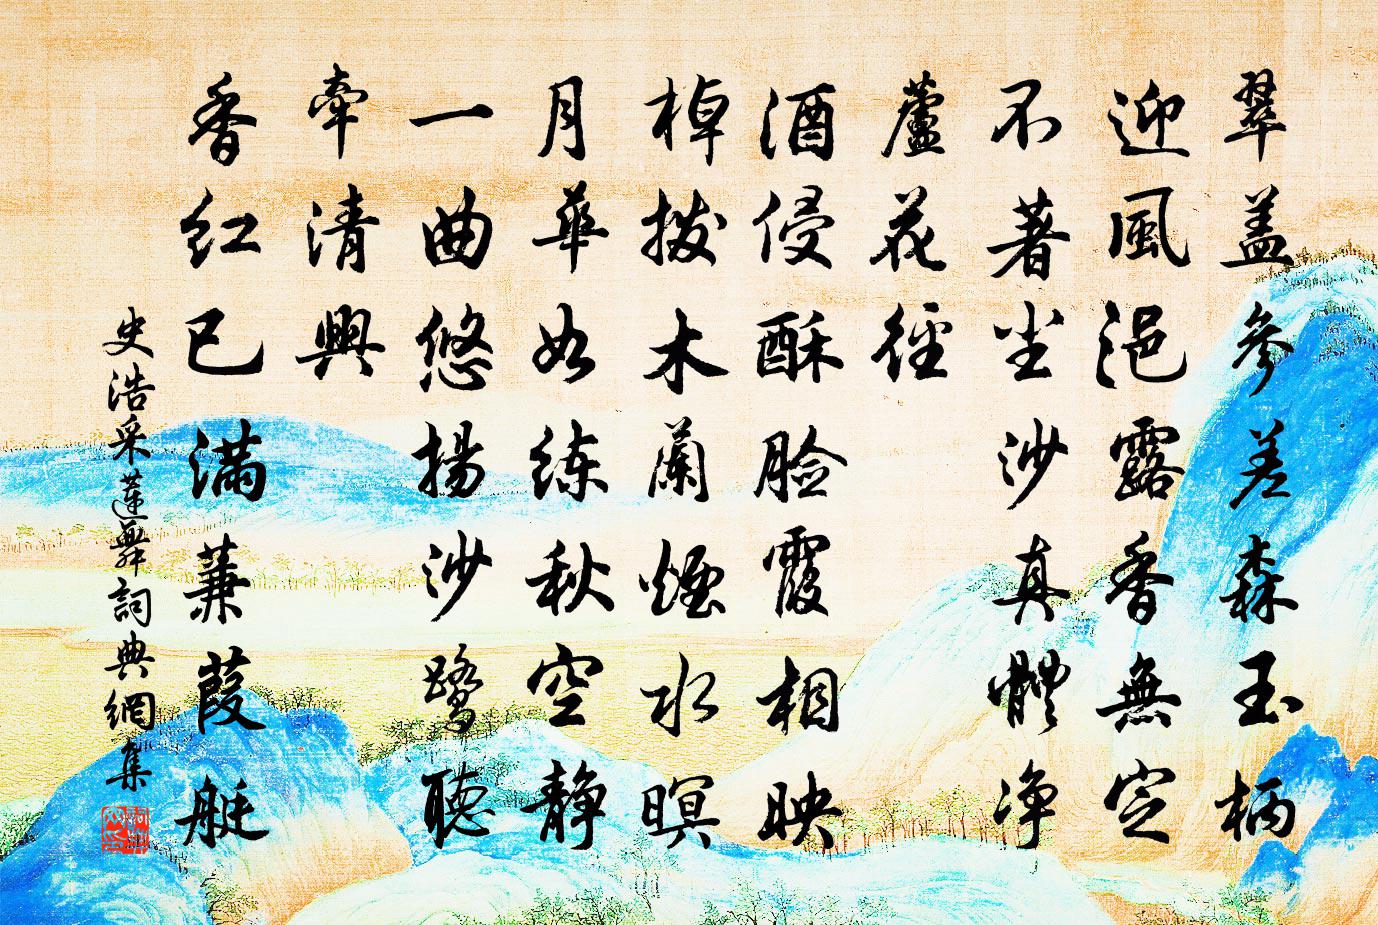 翠盖參差森玉柄
迎風浥露香無定
不著尘沙真體净
蘆花徑
酒侵酥脸霞相映
棹拨木蘭煙水暝
月華如练秋空静
一曲悠揚沙鹭聽
牽清興
香红已满蒹葭艇
史浩采蓮舞詞典網集